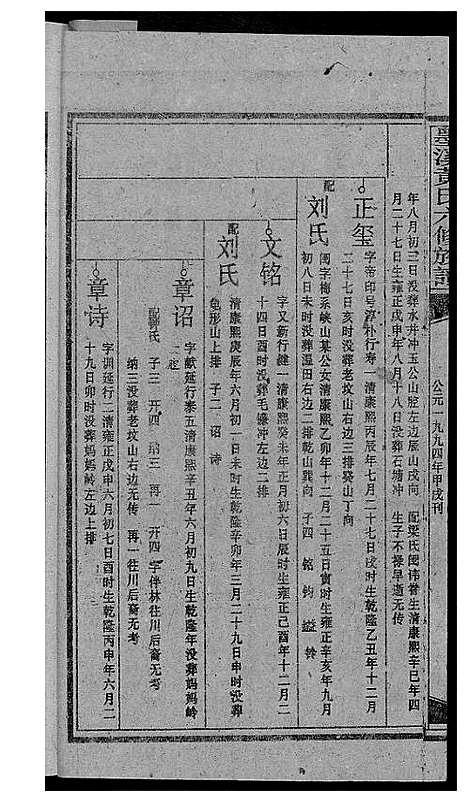 墨溪黄氏六修族谱
公元一九九四年甲戌刊
年八月初三日没葬水井冲玉公山脏左边辰山戌向 配梁氏闺讳誉生清康熙辛巳年四
月二十七日生雍正戊申年八月十八日没葬石塘冲 生子不禄早逝无传
正玺
字帝印号淳朴行寿一清康熙丙辰年七月二十七日戌时生乾隆乙丑年十二月
二十七日亥时没葬老坟山右边三排癸山丁向
配
刘氏
闺字梅系峡山某公女清康熙乙卯年十二月二十五日寅时生雍正辛亥年九月
初八日未时没葬温田右边二排乾山巽向 子四 铭 钧 鎰 铃
文铭
字又新行继一清康熙癸未年正月初六日辰时生雍正己酉年十二月二
十四日酉时没葬毛蠊冲左边二排
配
刘氏
清康熙庚辰年六月初一日未时生乾隆辛卯年三月二十九日申时没葬
龟形山上排 子二 诏 诗
章诏
字献廷行泰五清康熙辛丑年六月初九日生乾隆年没葬妈妈岭
二排
配 氏 子三 开四 纳三 再一 开四字伴林往川后裔无考
纳三没葬老坟山右边无传 再一往川后裔无考
章诗
字训廷行二清雍正戊申六月初七日酉时生乾隆丙申年六月二
十九日卯时没葬妈妈岭左边上排